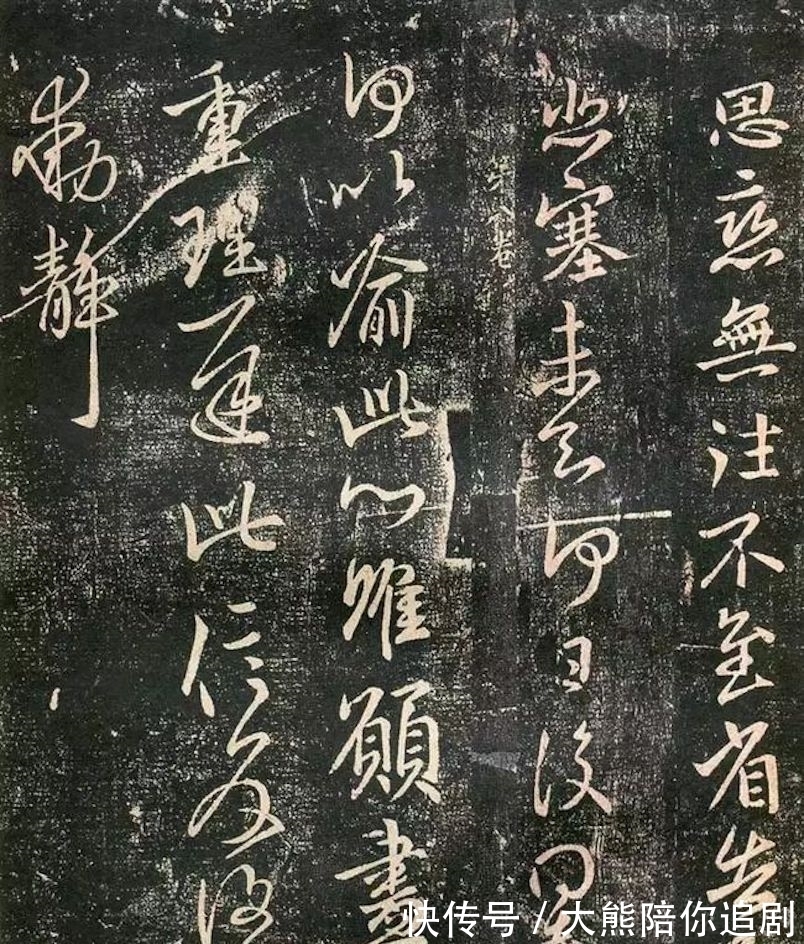 思戀無往不至省告
悲塞未知何日復
何以喻此心唯願盡
重理遲此信反復
動靜
快传号 / 大熊陪你追剧